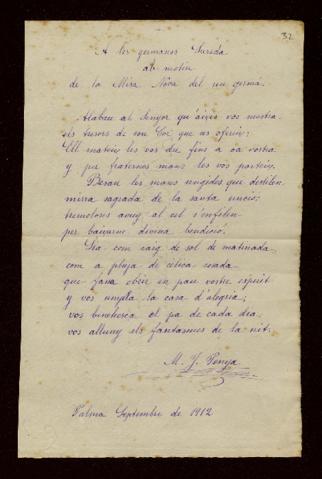 32
A les germanes Sureda
ab motiu
de la Missa Nova del seu germá.
Alabau al Senyor qu'aixis vos mostra
els tresors de son Cor que us ofereix;
Ell mateix les vos du fins a ca vostra
y per fraternes mans les vos parteix.
Besau les mans ungides que destilen
mirra sagrada de la santa unció;
tremoloses avuy al cel s'enfilen
per baixarne divina bendició.
Sia com raig de sol de matinada
com a pluja de celica rosada
que fassa obrir en pau vostre esperit
y vos umpla la casa d'alegria;
vos beneheca el pa de cada dia
vos alluny els fantasmes de la nit.
M. J. Penya
Palma Septembre de 1912